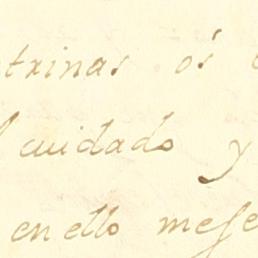 trinas ós
cuidado y
en ello